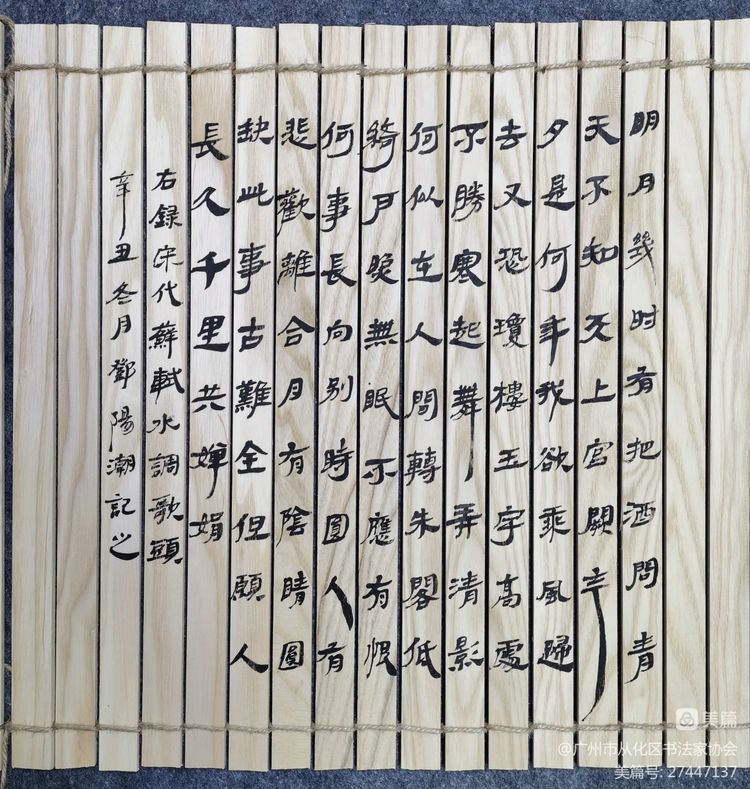 明月幾时有把酒問青
天不知天上宫闕今
夕是何年我欲乘風歸
去又恐瓊樓玉宇高處
不勝寒起舞弄清影
何似在人間轉朱閣低
綺戶照無眠不應有恨
何事長向别時圓人有
悲歡離合月有陰晴圓
缺此事古難全但願人
長久千里共嬋娟
右錄宋代蘇軾水調歌頭
辛丑冬月鄧陽潮記之
美篇
@广州市从化区书法家协会
美篇号: 27447137